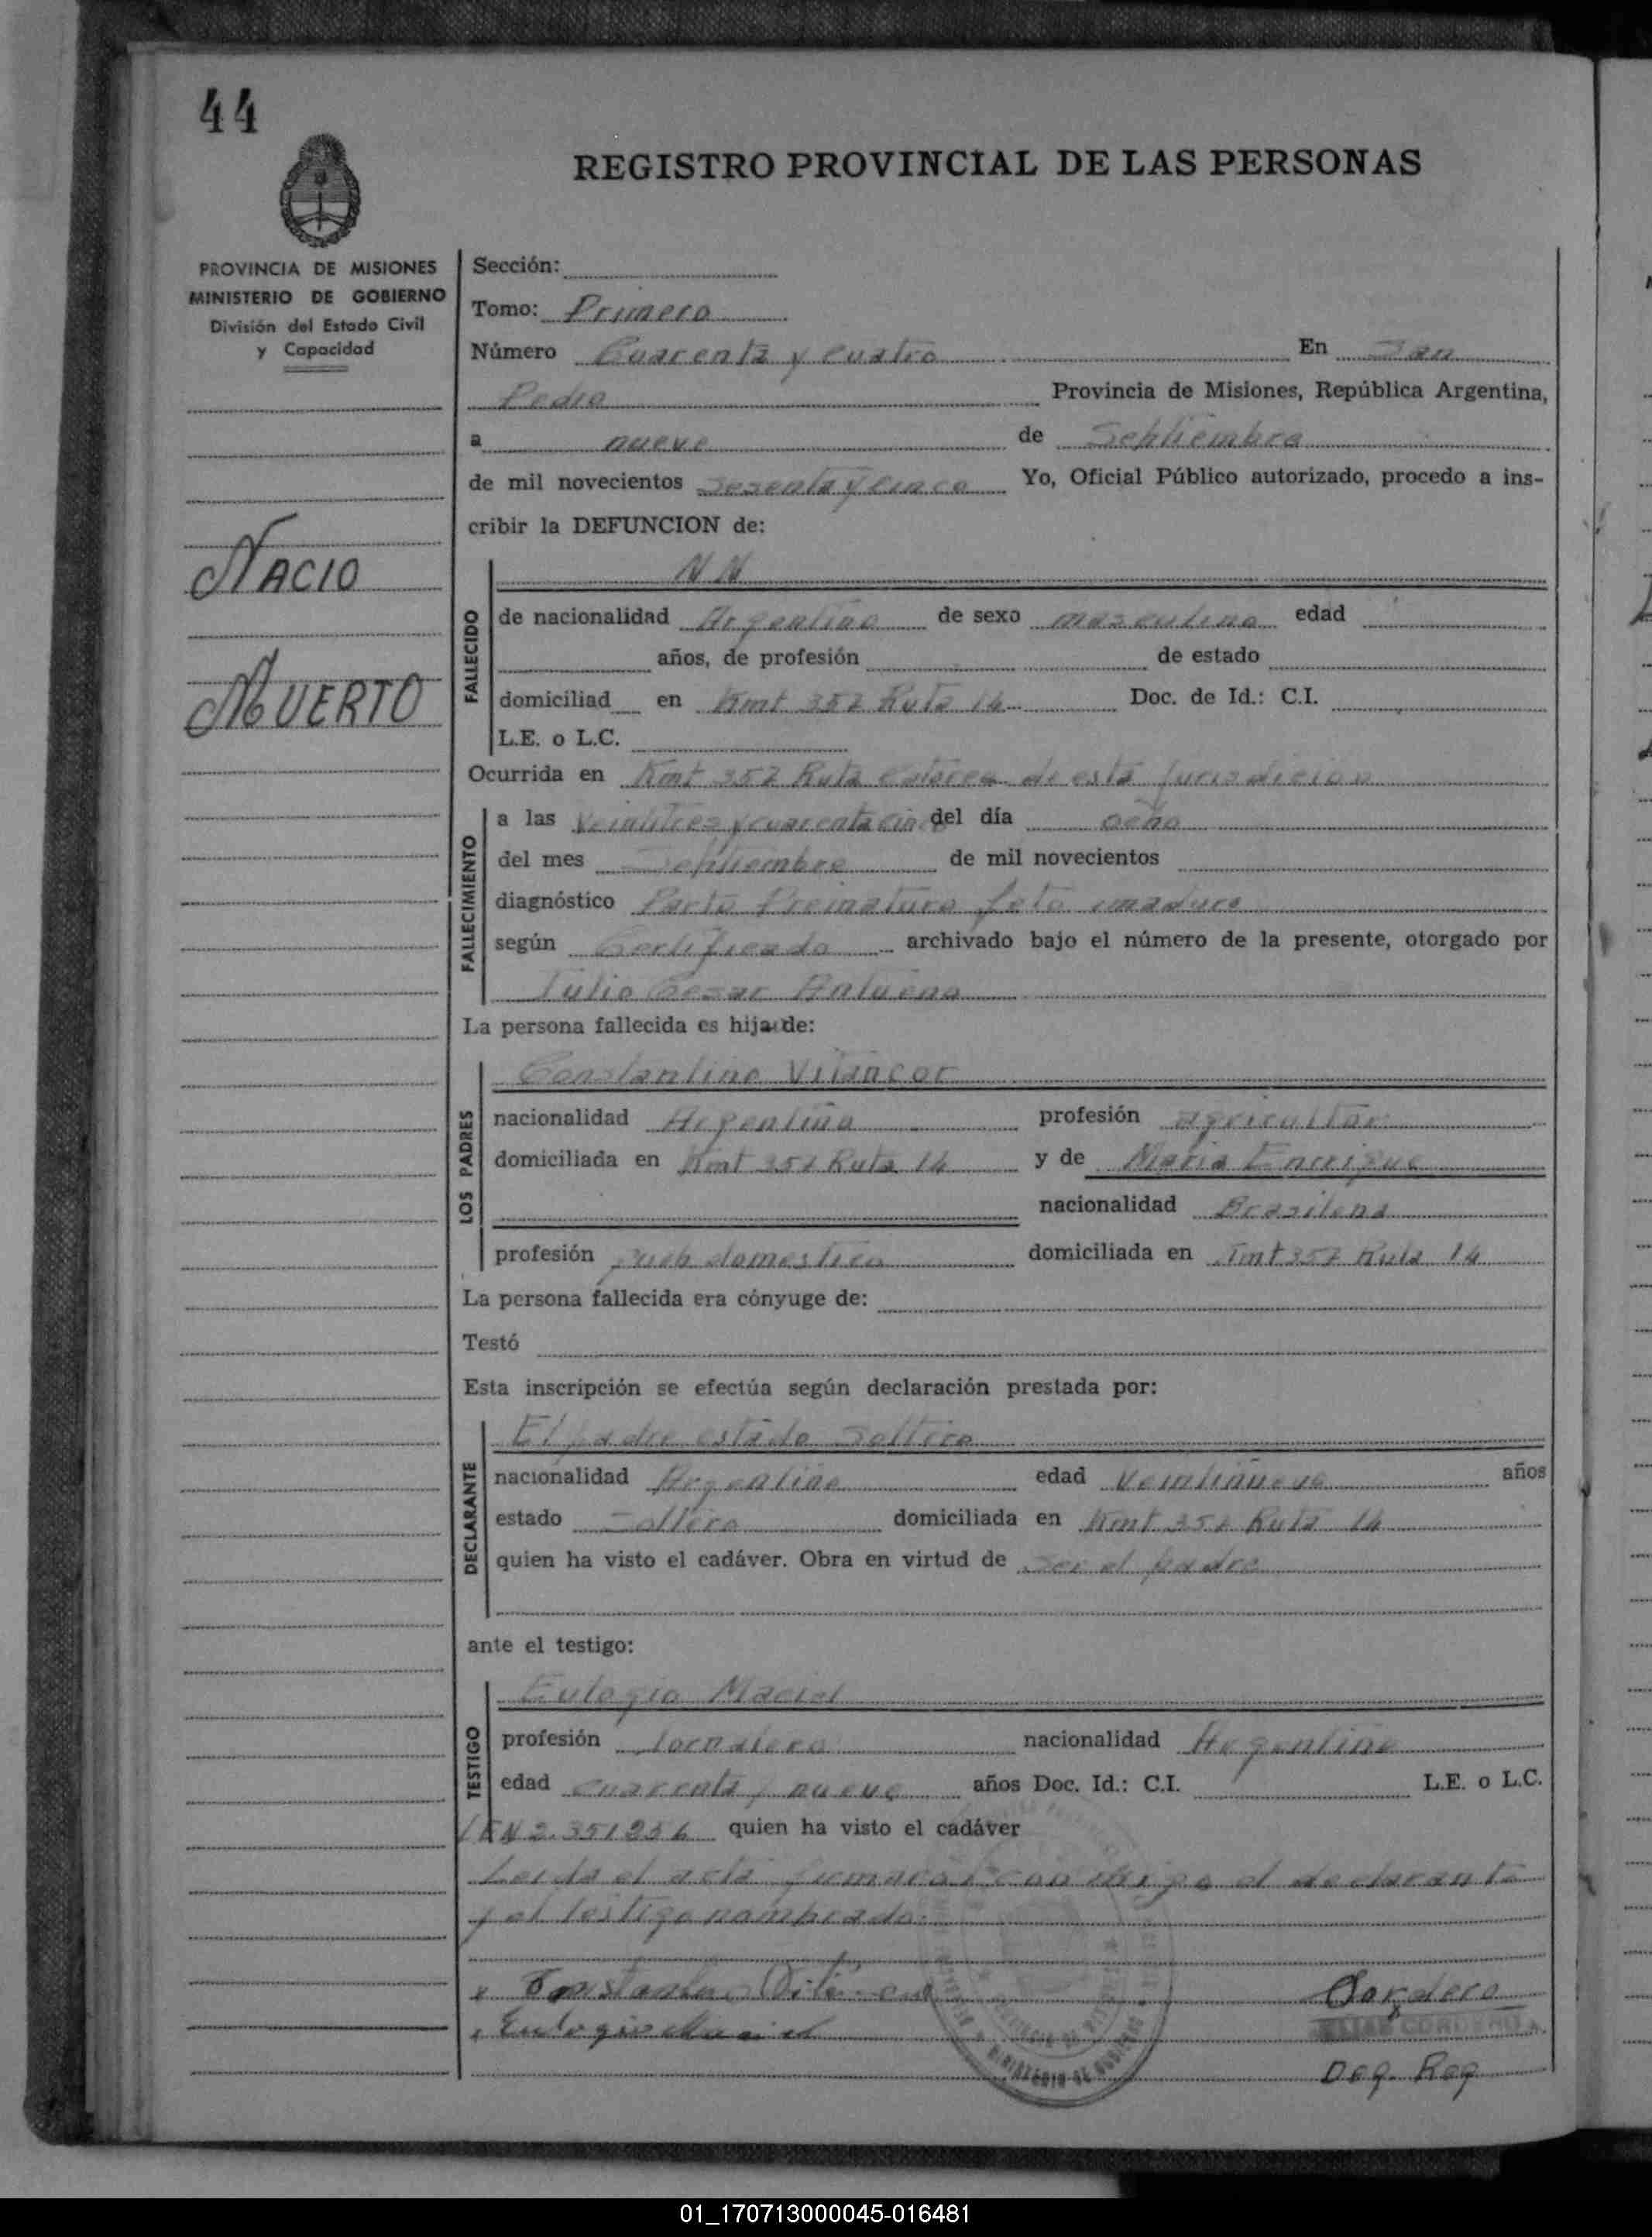 44
REGISTRO PROVINCIAL DE LAS PERSONAS
PROVINCIA DE MISIONES
MINISTERIO DE GOBIERNO
División del Estado Civil
y Capacidad
NACIO
MUERTO
Sección:
Tomo: Primero
Número Cuarenta y cuatro En San
Pedro Provincia de Misiones, República Argentina,
a nueve de Septiembre
de mil novecientos sesenta y cinco Yo, Oficial Público autorizado, procedo a ins-
cribir la DEFUNCION de:
FALLECIDO
N N
de nacionalidad Argentino de sexo masculino edad
años, de profesión de estado
domiciliad en Kmt 352 Ruta 14 Doc. de Id.: C.I.
L.E. o L.C.
Ocurrida en Kmt 352 Ruta de esta jurisdicion
FALLECIMIENTO
a las Veintitres y cuarenta cinco del día ocho
del mes Septiembre de mil novecientos
diagnóstico Parto Prematuro feto imaduro
según Certificado archivado bajo el número de la presente, otorgado por
Tulio Cesar
La persona fallecida es hija de:
LOS PADRES
Constantino Vilancor
nacionalidad Argentino profesión agricultor
domiciliada en Kmt 352 Ruta 14 y de Maria Enrrique
nacionalidad Brasilena
profesión domestico domiciliada en Kmt 352 Ruta 14
La persona fallecida era cónyuge de:
Testó
Esta inscripción se efectúa según declaración prestada por:
DECLARANTE
El padre estado Soltero
nacionalidad Argentino edad Veintinueve años
estado Soltero domiciliada en Kmt 352 Ruta 14
quien ha visto el cadáver. Obra en virtud de ser el padre
ante el testigo:
TESTIGO
Eulogio Maciel
profesión Jornalero nacionalidad Argentino
edad cuarenta y nueve años Doc. Id.: C.I. L.E. o L.C.
quien ha visto el cadáver
Leida el acta firmaron con migo el declarante
y el testigo nombrado.
Cordero
Eulogio Maciel
ELIAS CORDERO
Deg. Reg
01_170713000045-016481